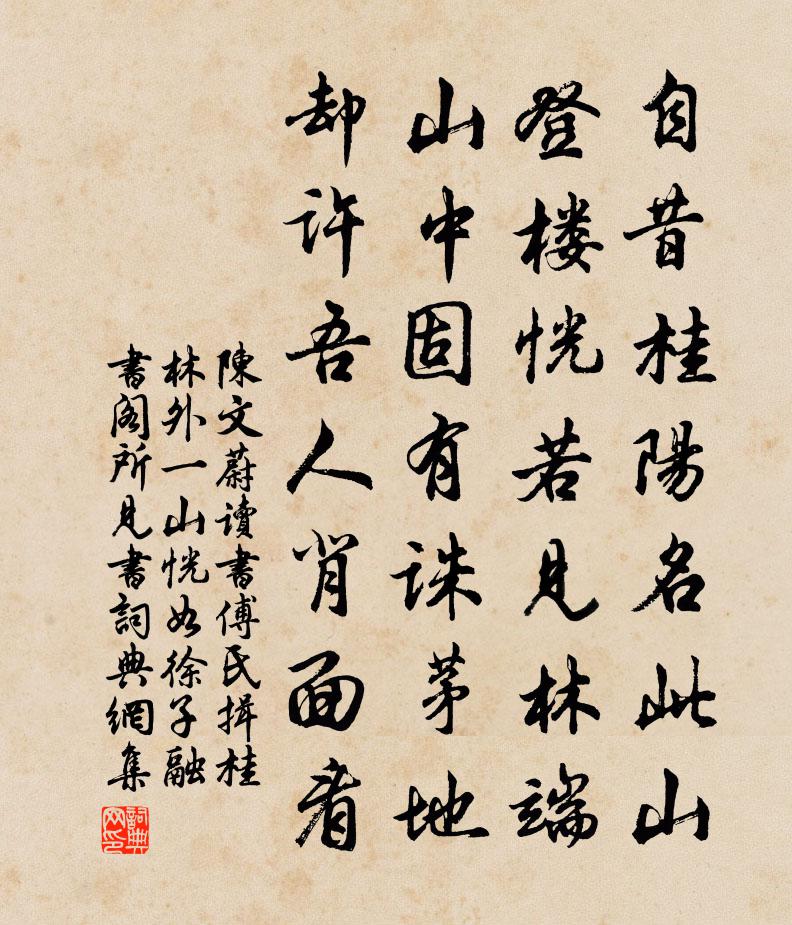 自昔桂陽名此山
登楼恍若見林端
山中固有誅茅地
却許吾人背面看
陳文蔚讀書傅氏揖桂
林外一山恍如徐子融
書阁所見書詞典網集
詞典网印